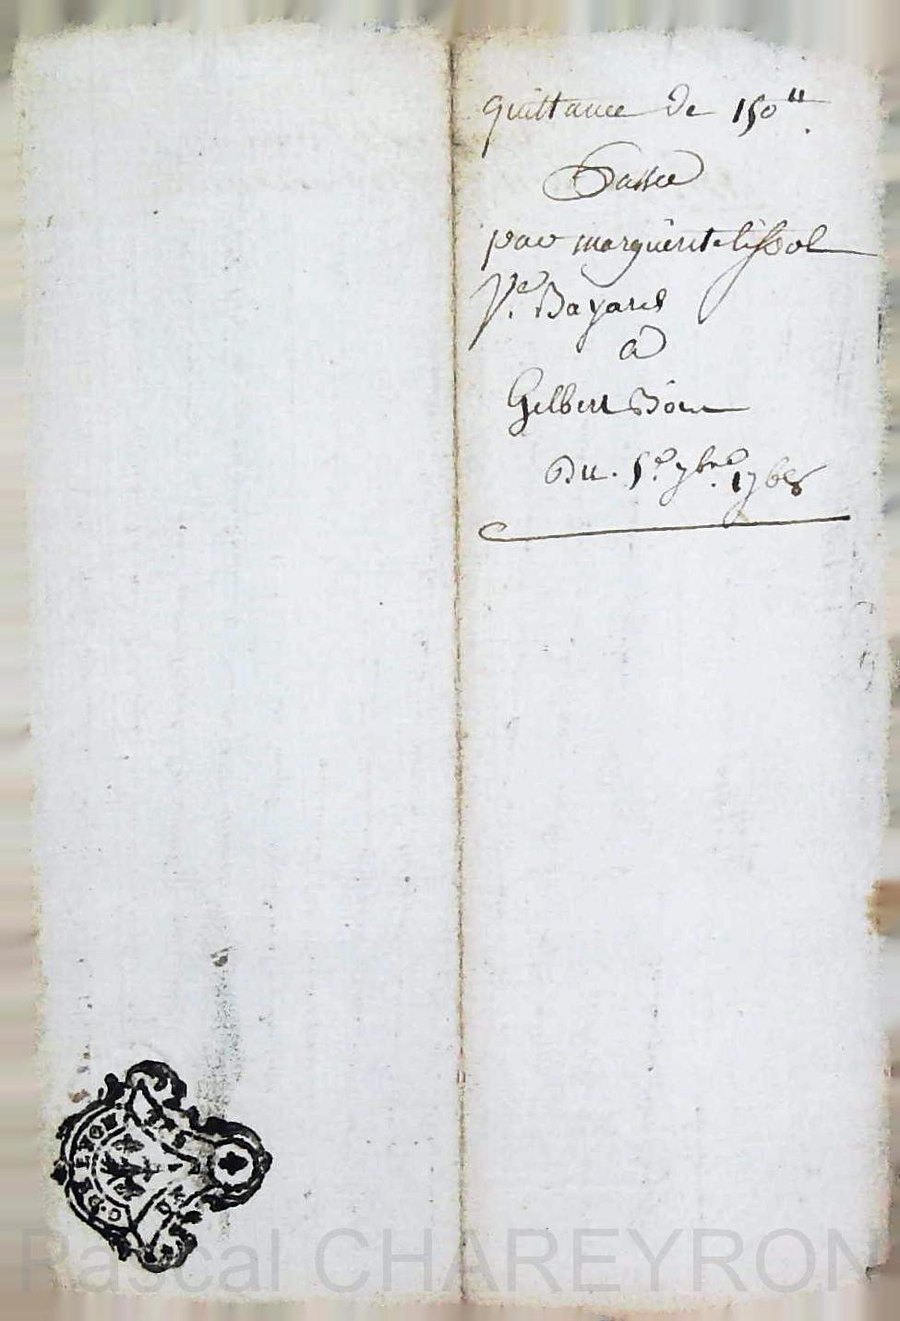 quittance de 150ᵗᵗ.
Passée
par marguerite lissol
Vᵉ. Bayard
à
Gilbert
Du. 5ᵉ. 7bʳᵉ. 1768
G. DE LYON
Pascal CHAREYRON